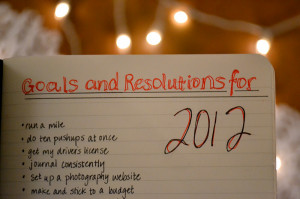 Goals and Resolutions for
2012
• run a mile
• do ten pushups at once
• get my drivers license
• journal consistently
• set up a photography website
• make and stick to a budget